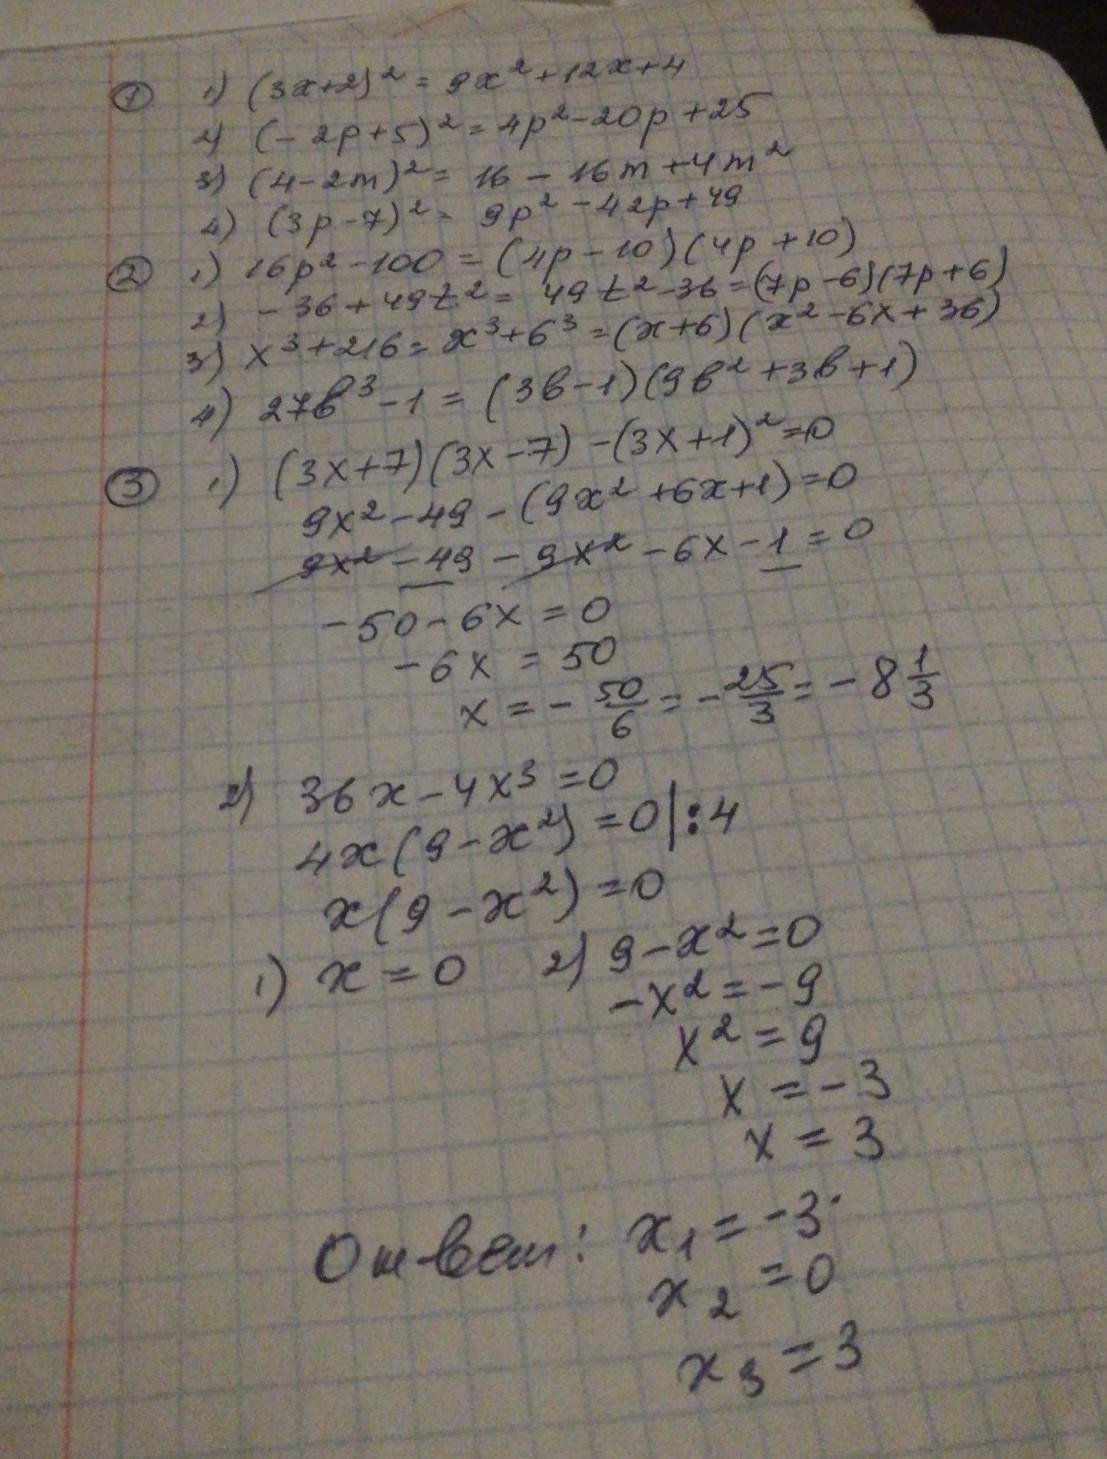 ① 1) (3x+2)² = 9x²+12x+4
2) (-2p+5)² = 4p²-20p+25
3) (4-2m)² = 16 - 16m+4m²
4) (3p-7)² = 9p²-42p+49
② 1) 16p²-100 = (4p-10)(4p+10)
2) -36+49t² = 49t²-36=(7p-6)(7p+6)
3) x³+216= x³+6³=(x+6)(x²-6x+36)
4) 27b³-1 = (3b-1)(9b²+3b+1)
③ 1) (3x+7)(3x-7)-(3x+1)²=0
9x²-49-(9x²+6x+1)=0
9x²-49-9x²-6x-1=0
-50-6x=0
-6x=50
x=-50/6=-25/3=-8 1/3
2) 36x-4x³=0
4x(9-x²)=0|:4
x(9-x²)=0
1) x=0 2) 9-x²=0
-x²=-9
x²=9
x=-3
x=3
Ответ: x₁=-3
x₂=0
x₃=3